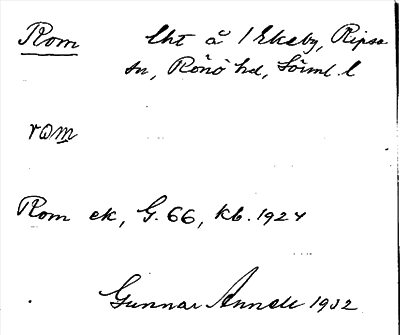 Rom lht å 1 Ekeby, Ripsa
sn, Rönö hd, Sörml. l
rom
Rom ek, G. 66, kb. 1924
Gunnar Annell 1932